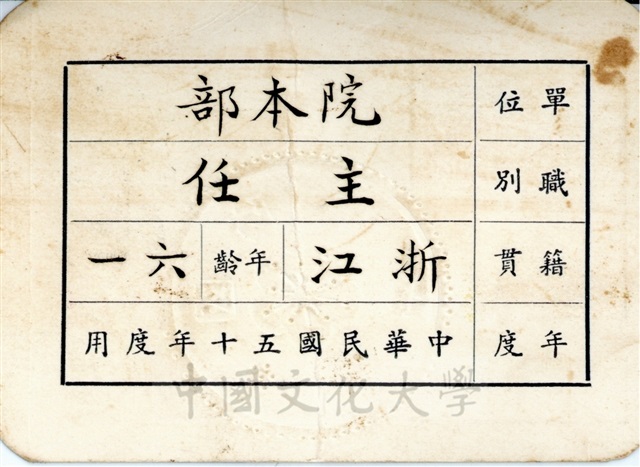 單位 院本部
職別 主任
籍貫 浙江 年齡 六一
年度 中華民國五十年度用
中國文化大學